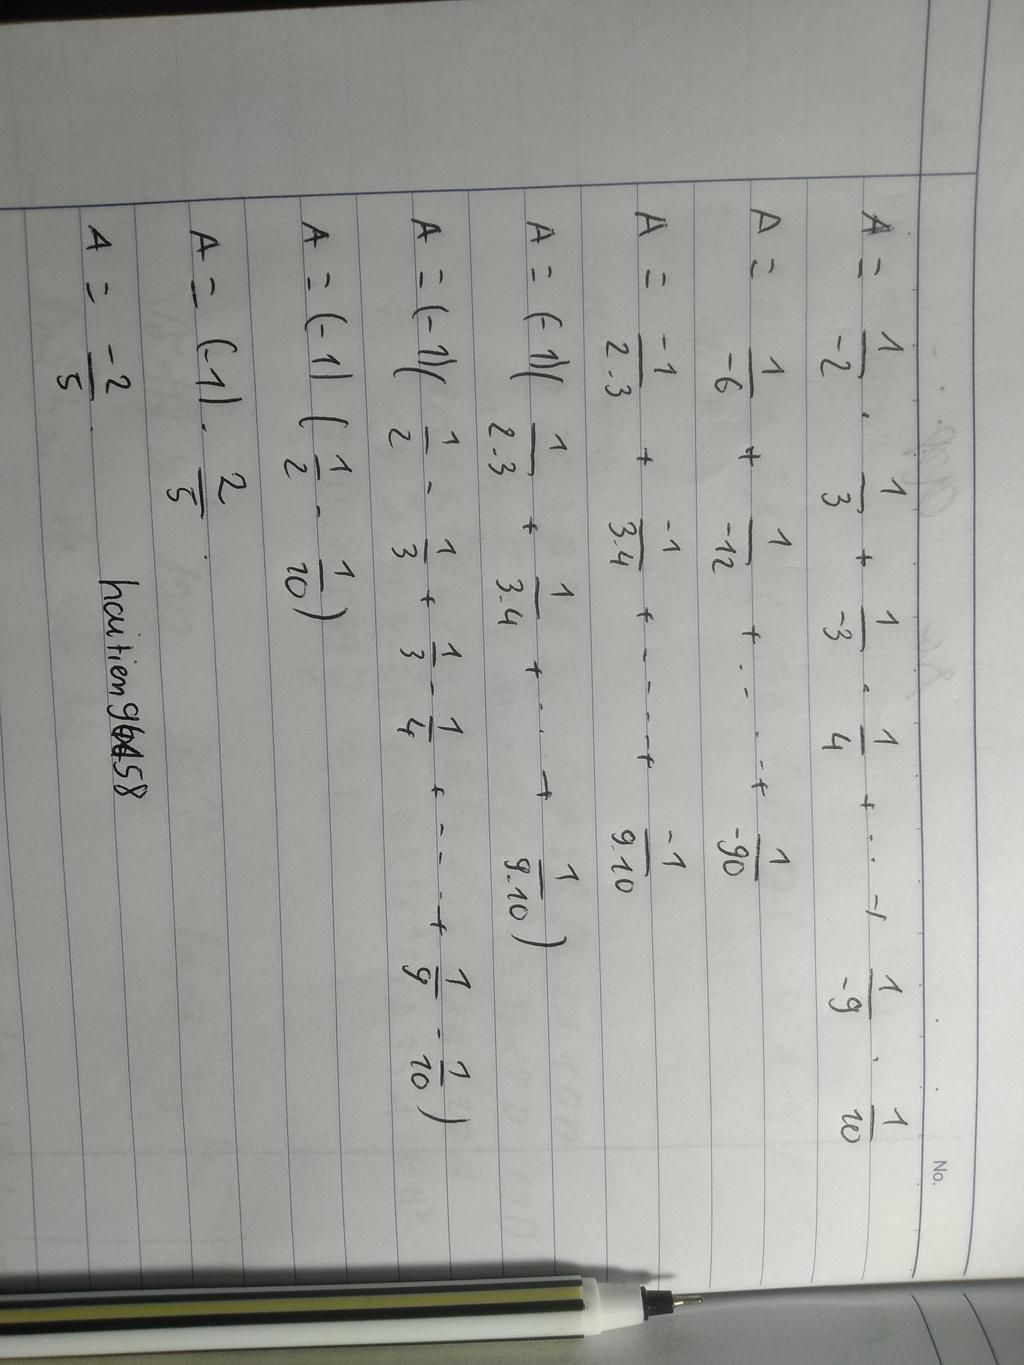 No.
A = 1/-2 . 1/3 + 1/-3 . 1/4 + ... + 1/-9 . 1/10
A = 1/-6 + 1/-12 + ... + 1/-90
A = -1/2.3 + -1/3.4 + ---- + -1/9.10
A = (-1)(1/2.3 + 1/3.4 + ... + 1/9.10)
A = (-1)(1/2 - 1/3 + 1/3 - 1/4 + --- + 1/9 - 1/10)
A = (-1)(1/2 - 1/10)
A = (-1). 2/5.
A = -2/5.